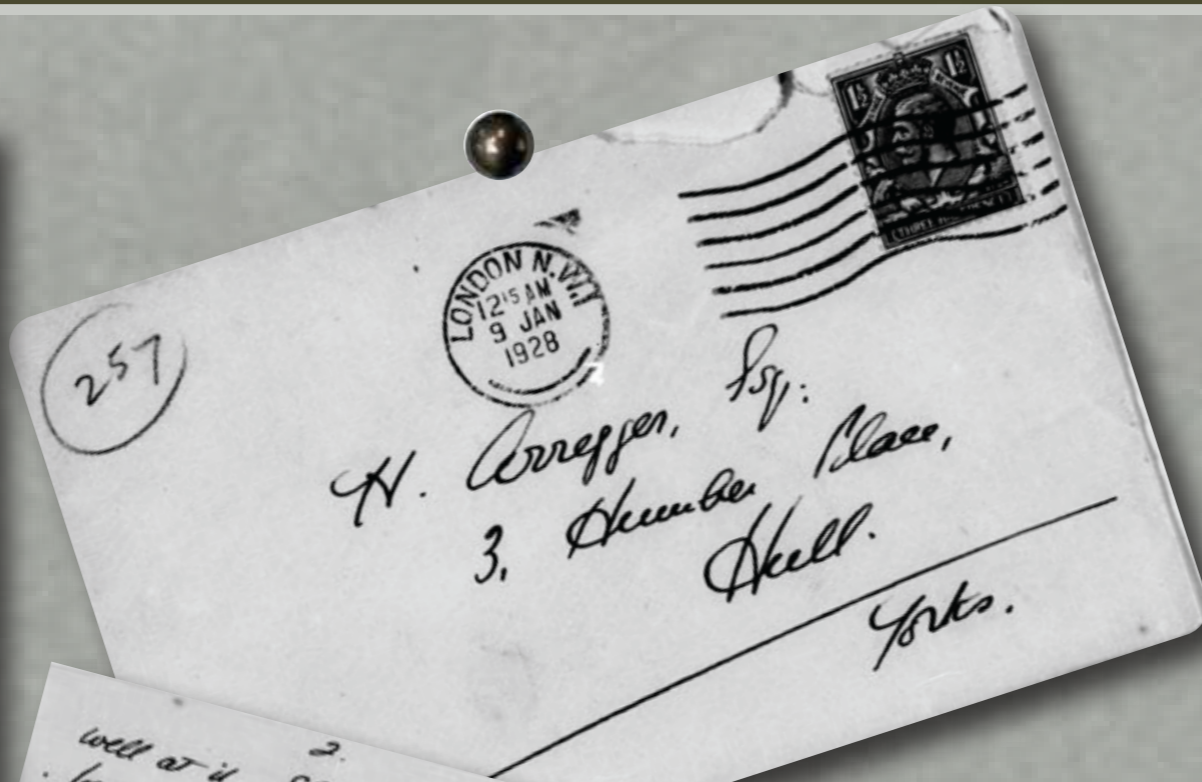 1½ 1½
LONDON N.W.1
12¹⁵ AM
9 JAN
1928
257
H. Corregger, Esq.
3, Humber Place,
Hull.
Yorks.
2.
well at it